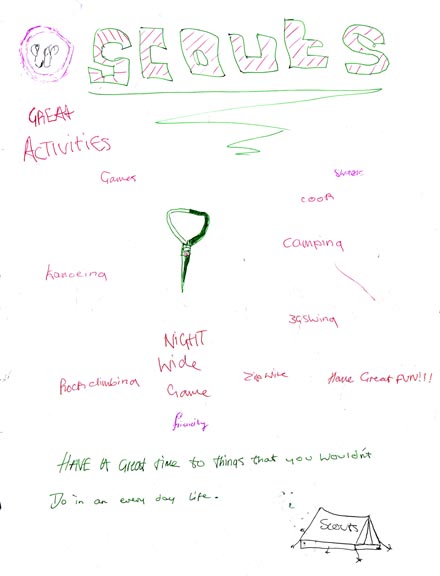 SCOUtS
GREAT
ACTiViTiES
Games
COOK
Camping
Kanoeing
3GSwing
NiGHT
Wide
Game
Rockclimbing
Zip Wire
Have Great FUN!!!
HAVE A Great time to things that you wouldn't
Do in an every day life.
Scouts